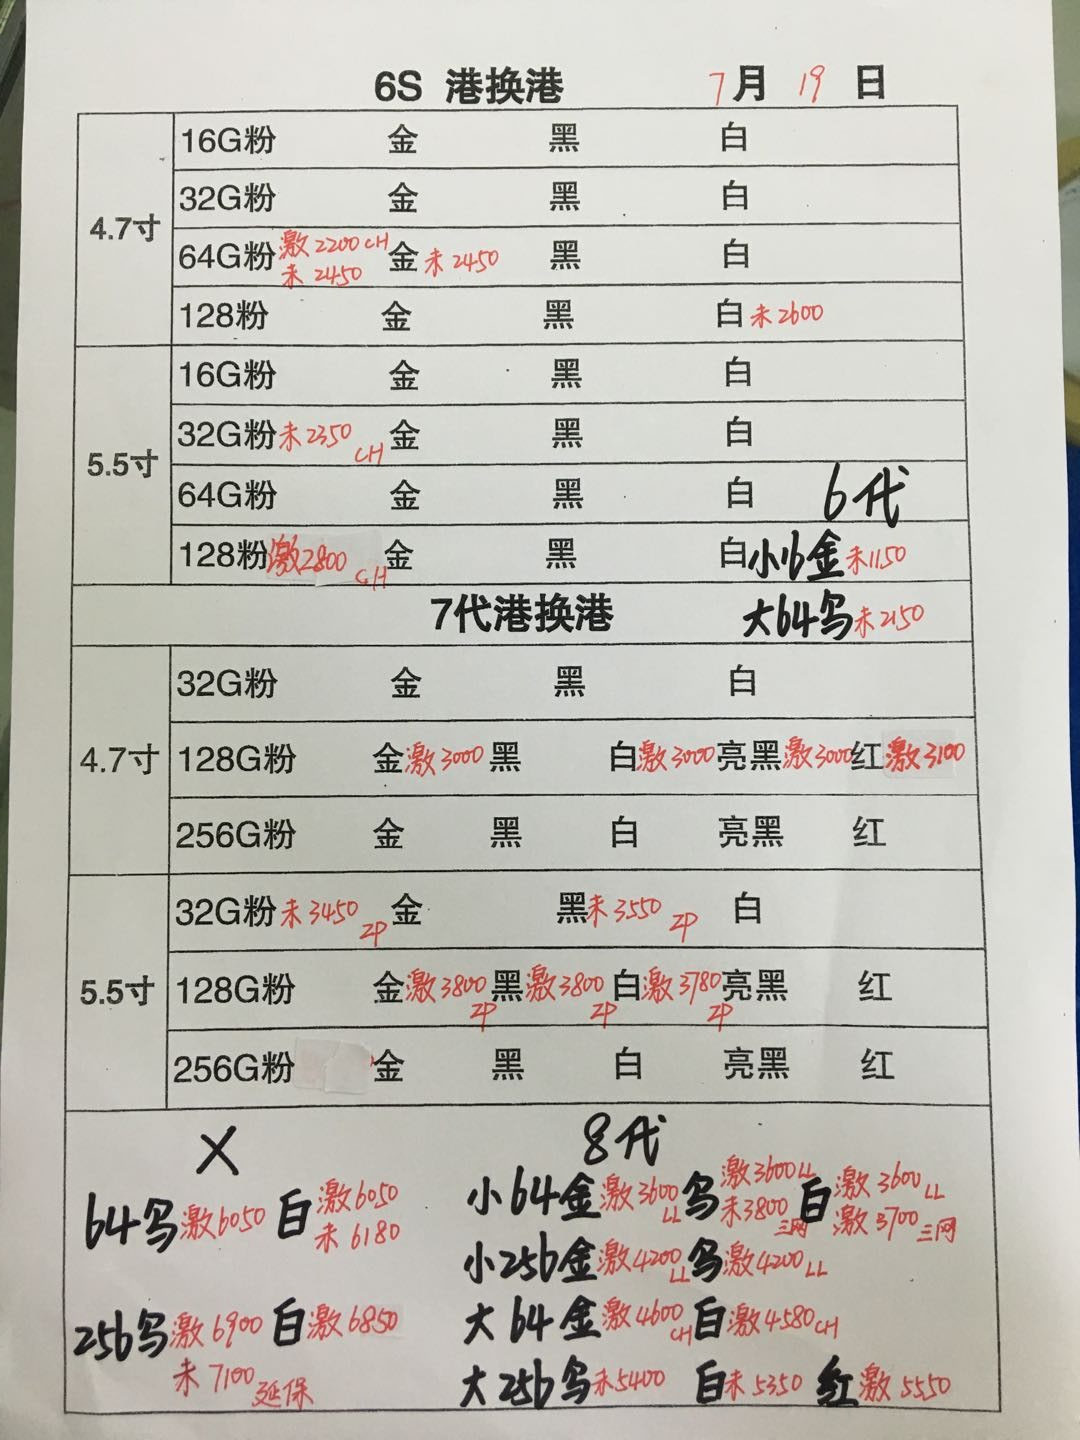 6S 港换港 7月 19日
4.7寸
16G粉 金 黑 白
32G粉 金 黑 白
64G粉 激2200CH 未2450 金 未2450 黑 白
128粉 金 黑 白 未2600
5.5寸
16G粉 金 黑 白
32G粉 未2350 CH 金 黑 白
64G粉 金 黑 白 6代
128粉 激2800 CH 金 黑 白 小16金 未1150
7代港换港 大64乌 未2150
4.7寸
32G粉 金 黑 白
128G粉 金 激3000 黑 白 激3000 亮黑 激3000 红 激3100
256G粉 金 黑 白 亮黑 红
5.5寸
32G粉 未3450 ZP 金 黑 未3550 ZP 白
128G粉 金 激3800 ZP 黑 激3800 ZP 白 激3780 ZP 亮黑 红
256G粉 金 黑 白 亮黑 红
X
64乌 激6050 白 激6050 未6180
256乌 激6900 白 激6850
未7100 延保
8代
小64金 激3600 LL 乌 激3600LL 未3800 三网 白 激3600LL 激3700 三网
小256金 激4200 LL 乌 激4200LL
大64金 激4600 CH 白 激4580CH
大256乌 未5400 白 未5350 红 激5550